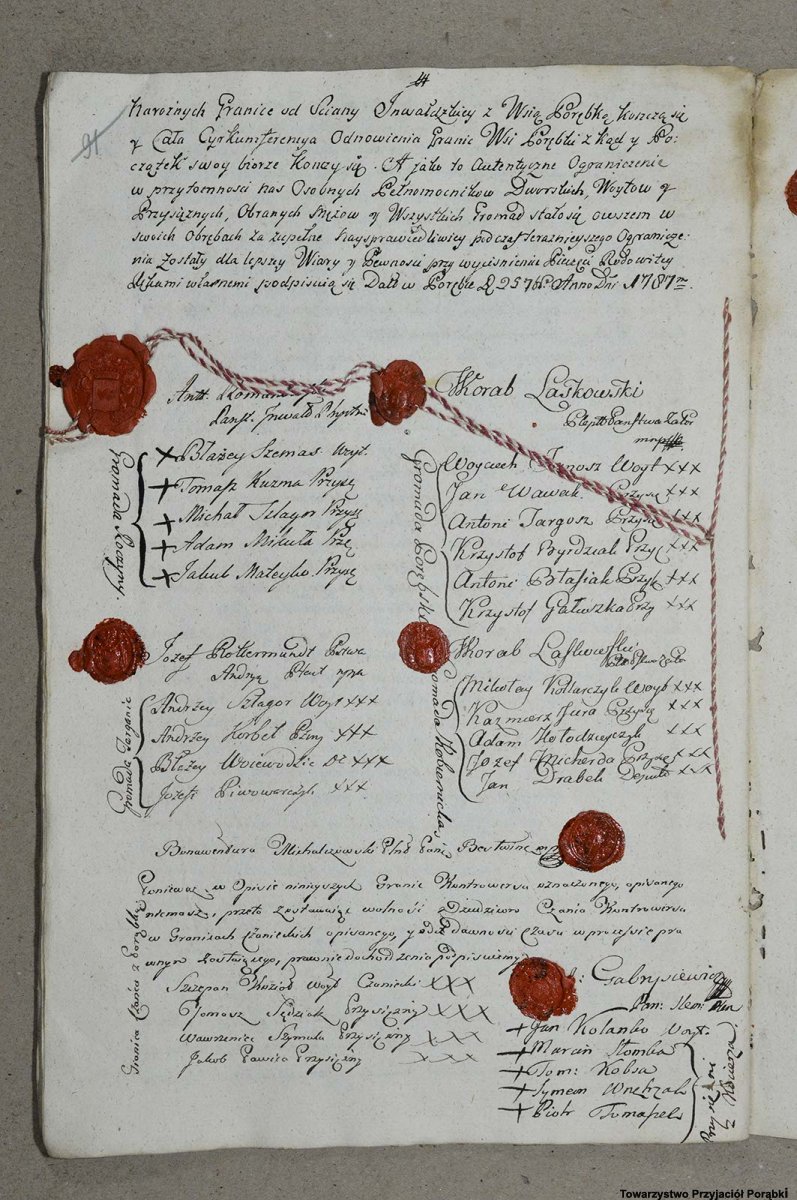 14
91
Narożnych Granice od Sciany Inwałdzkiey z Wsią Porębką konczą się
y Cała Cyrkumferencya Odnowienia Granic Wsi Porębki z kąd y Po=
czątek swoy bierze konczy się. A jako to Autentyczne Ograniczenie
w przytomnosci nas Osobnych Pełnomocnikow Dworskich, Woytow y
Przysiężnych, Obranych Mężow y Wszystkich Gromad stało się owszem w
swoich obrębach za zupełne naysprawiedliwiey podczas teraznieyszego Ogranicze=
nia zostały dla lepszey Wiary y Pewnosci przy wycisnieniu Pieczęci Rodowitey
Rękami własnemi podpisuią się Dato w Porębie D 25 Anno Dni 1787
Antt.
Panst. Inwałd
Korab Laskowski
Gromada Roczyny
X Błażey Szemas Woyt.
X Tomasz Kuzma Przysę
X Michał Szlagor Przysę
X Adam Mikuła Prsę
X Jakub Mateyko Przysę
Gromada Porębska
Woyciech Janosz Woyt XXX
Jan Wawak Przysię XXX
Antoni Targosz Przysię XXX
Krzystof Byrdziak Przyś XXX
Antoni Błasiak Przyś XXX
Krzystof Gałuszka Przy XXX
Jozef Rottermundt Pstwa
Andry Plent mpp
Gromada Targanic
Andrzey Szlagor Woyt XXX
Andrzey Korbel XXX
Błażey Woiewodzic XXX
Jozef Piwowarczyk XXX
Korab Laskowski
Gromada Kobiernicka
Mikołay Kollarczyk Woyt XXX
Kazmierz Jura Przysię XXX
Adam Kołodzieyczyk XXX
Jozef Micherda Przysięś XXX
Jan Drabek Deputo XXX
Bonawentura Michalczowski Plnt Pani Bestwine
Granica Czańca z Porębką
Poniewaz w Opisie ninieyszych Granic Kontrowersu oznaczonego, opisanego
niemasz, przeto zostawuiąc wolność Dziedzicwo Czańca Kontrowersu
w Granicach Czanieckich opisanego, y od dawnosci Czasu w processie pra
wnym zostaiącego, prawnie dochodzenia podpisuiemy
Szczepan Kozioł Woyt Czaniecki XXX
Tomasz Sędziak Przysiężny XXX
Wawrzeniec Szymala Przysiężny XXX
Jakub Pawica Przysiężny XXX
Gabrysiewicz
Pan: Slem: Plen
X Jan Kolanko Woyt.
X Marcin Stomba
X Tom: Kobsa
X Symeon Wnętrzak
X Piotr Tomaszek
Przysiężni z Kocierza
Towarzystwo Przyjaciół Porąbki